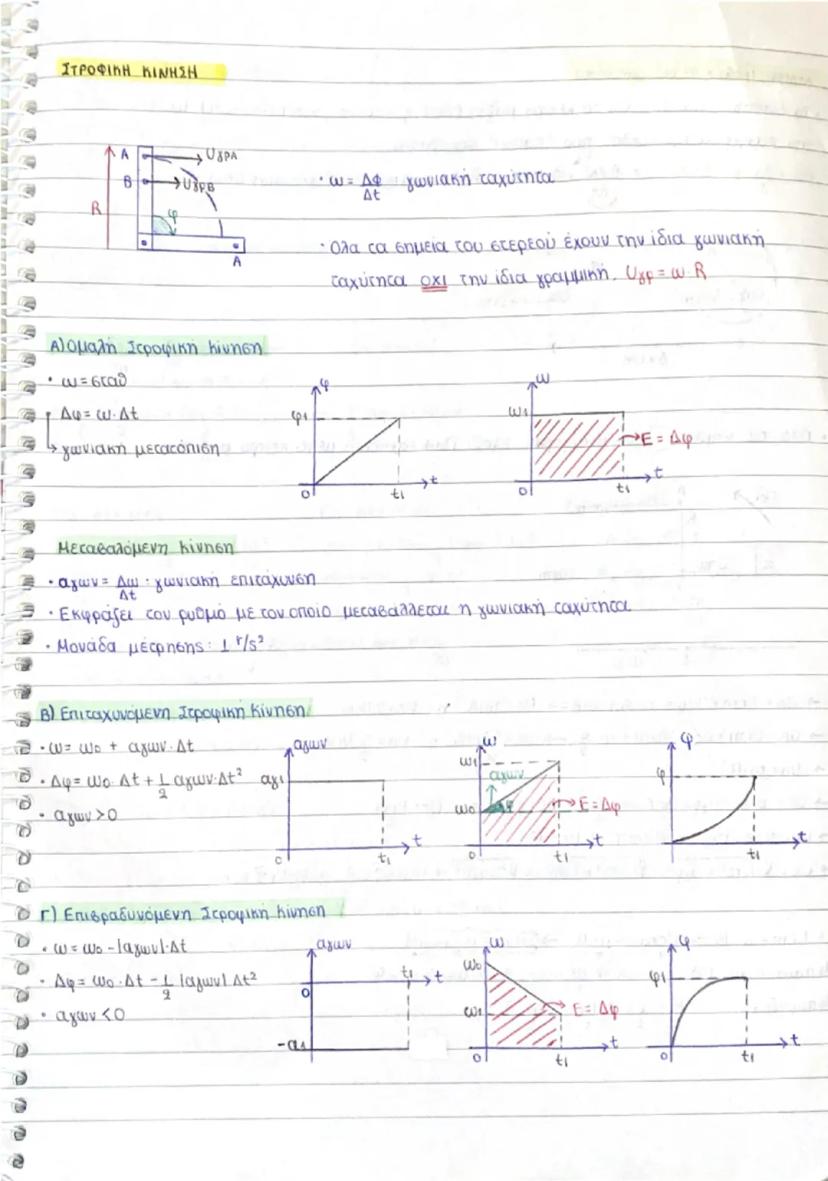 ΣΤΡΟΦΙΚΗ ΚΙΝΗΣΗ
A υγρΑ
B υγρΒ
R
φ
A
• ω = Δφ/Δt γωνιακή ταχύτητα
• Όλα τα σημεία του στερεού έχουν την ίδια γωνιακή
ταχύτητα ΟΧΙ την ίδια γραμμική. υγρ = ω·R
Α) Ομαλή Στροφική Κίνηση
• ω = σταθ
• Δφ = ω·Δt
↳ γωνιακή μετατόπιση
φ
φ1
0 t1 t
ω
ω1
E = Δφ
0 t1 t
Μεταβαλόμενη Κίνηση
• αγων = Δω/Δt : γωνιακή επιτάχυνση
• Εκφράζει τον ρυθμό με τον οποίο μεταβάλλεται η γωνιακή ταχύτητα
• Μονάδα μέτρησης: 1 r/s²
Β) Επιταχυνόμενη Στροφική Κίνηση
• ω = ω0 + αγων·Δt
• Δφ = ω0·Δt + 1/2 αγων·Δt²
• αγων > 0
αγων
αγ1
0 t1 t
ω
ω1
αγων
ω0 φ
E = Δφ
0 t1 t
φ
φ
0 t1 t
Γ) Επιβραδυνόμενη Στροφική Κίνηση
• ω = ω0 - |αγων|·Δt
• Δφ = ω0·Δt - 1/2 |αγων| Δt²
• αγων < 0
αγων
t1 t
0
-α1
ω
ω0
ω1
E = Δφ
0 t1 t
φ
φ1
0 t1 t